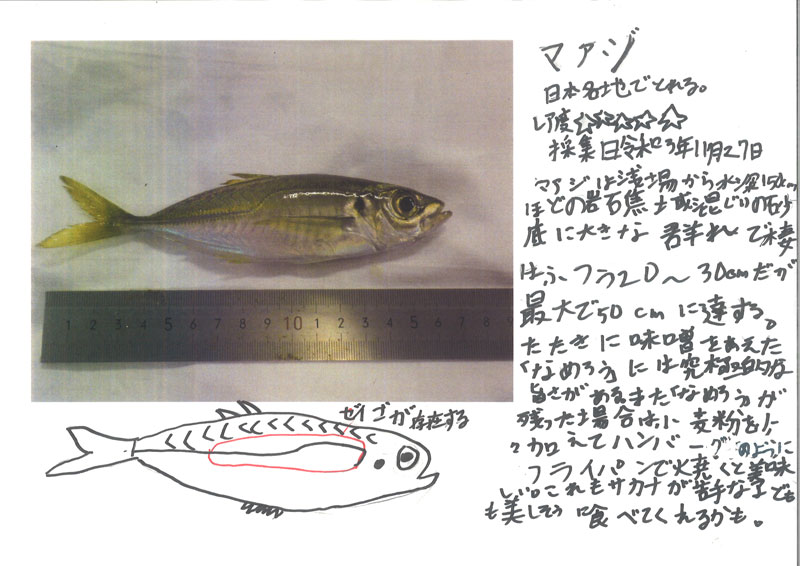 マアジ
日本各地でとれる。
レア度☆☆☆☆☆
採集日令和3年11月27日
マアジは浅場から水深150m
ほどの岩石焦土或混じりの砂
底に大きな群れで棲
はふつう20〜30cmだが
最大で50cmに達する。
たたきに味噌をあえた
「なめろう」には究極的な
旨さがあるまた「なめろう」が
残った場合は小麦粉を
加えてハンバーグのように
フライパンで火焼くと美味
しい。これもサカナが苦手な子でも
も美しそう喰べてくれるかも。
1 2 3 4 5 6 7 8 9 10 1 2 3 4 5 6 7 8 9
ゼイゴが存在する